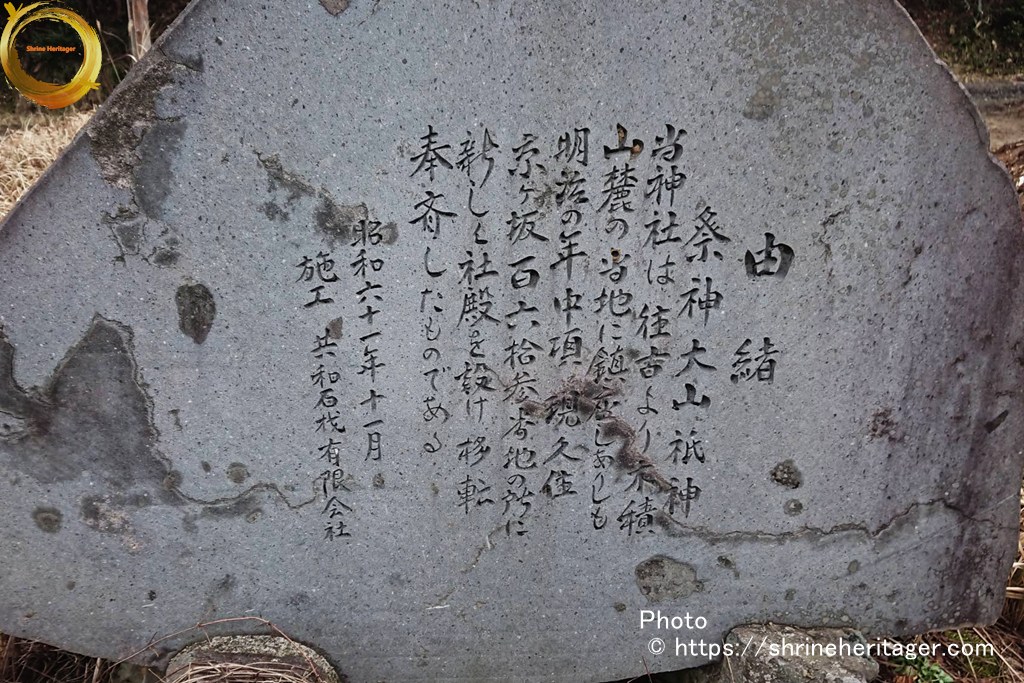 由緒
祭神 大山祇神
当神社は 往古より 木積
山麓の 当地に鎮座しありしも
明治の年中項 現久住
京ヶ坂百六拾参番地の所に
新しく社殿を設け移転
奉斉したものである
昭和六十一年十一月
施工 共和石材有限会社
Shrine Heritager
Photo
© https://shrineheritager.com